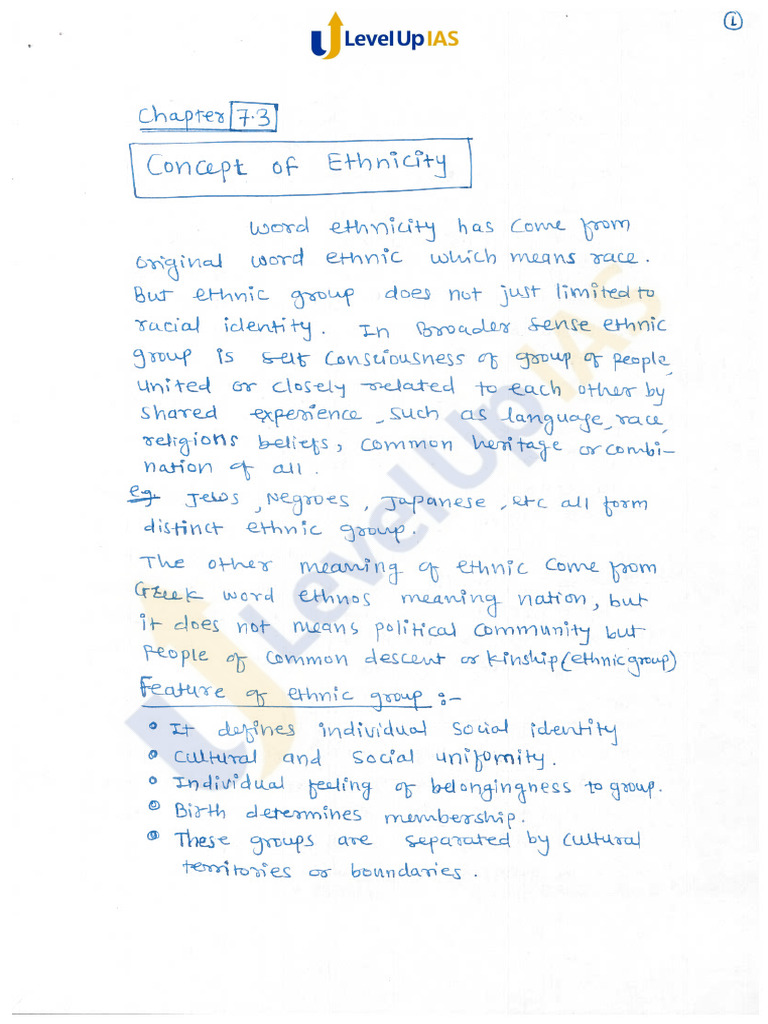 LevelUp IAS
1
Chapter 7.3
Concept of Ethnicity
Word ethnicity has come from
original word ethnic which means race.
But ethnic group does not just limited to
racial identity. In Broader sense ethnic
group is self consciousness of group of people,
united or closely related to each other by
shared experience, such as language, race,
religions beliefs, common heritage or combi-
nation of all.
eg. Jews, Negroes, Japanese, etc all form
distinct ethnic group.
The other meaning of ethnic come from
Greek word ethnos meaning nation, but
it does not means political community but
People of common descent or kinship (ethnic group)
Feature of ethnic group :-
• It defines individual social identity
• Cultural and social uniformity.
• Individual feeling of belongingness to group.
• Birth determines membership.
• These groups are separated by cultural
territories or boundaries.
LevelUp IAS